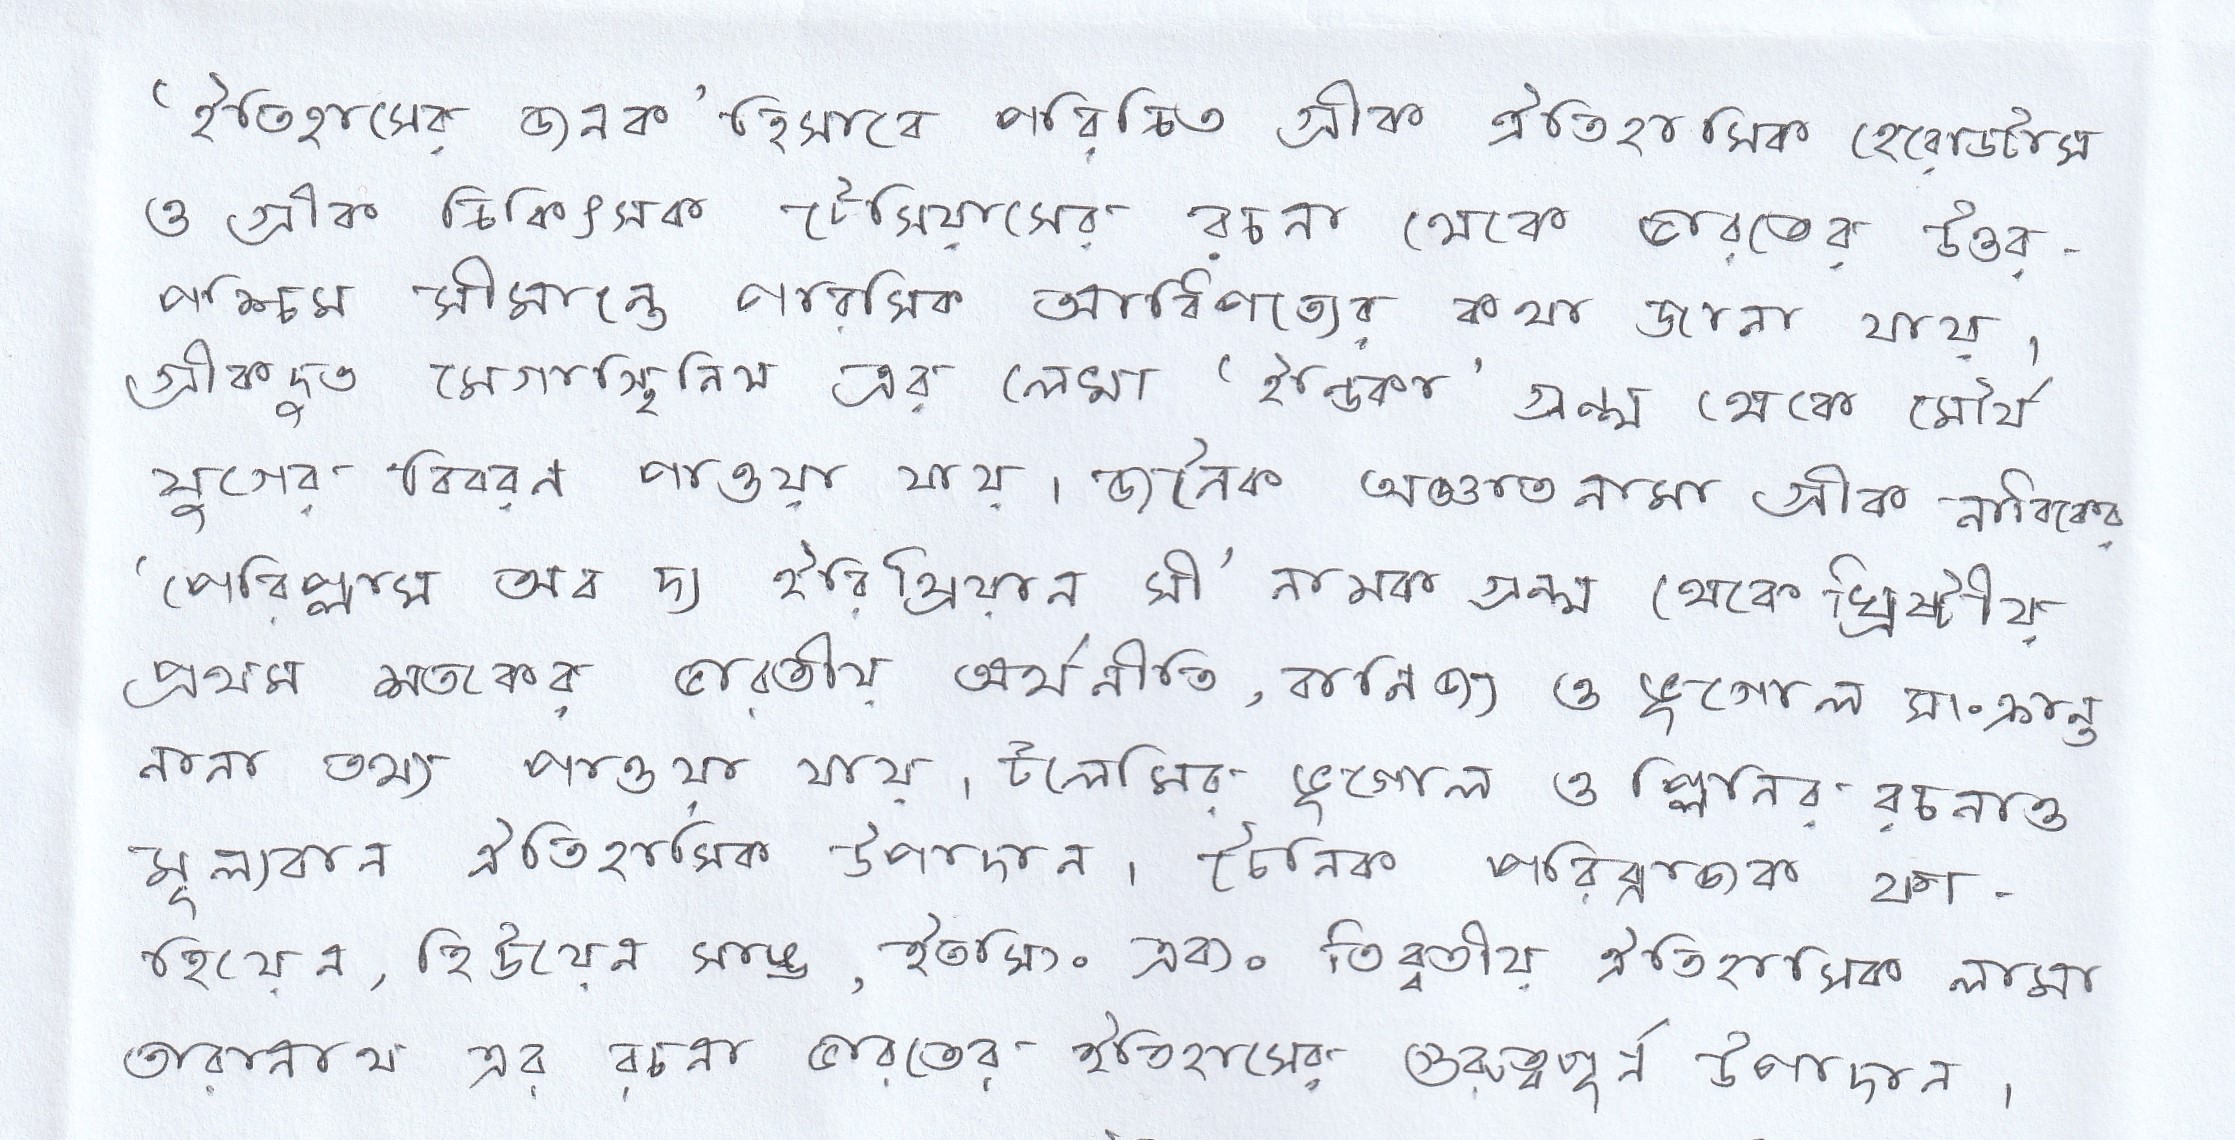 'ইতিহাসের জনক' হিসাবে পরিচিত গ্রীক ঐতিহাসিক হেরোডটাস
ও গ্রীক চিকিৎসক টেসিয়াসের রচনা থেকে ভারতের উত্তর-
পশ্চিম সীমান্তে পারসিক আধিপত্যের কথা জানা যায়।
গ্রীকদুত মেগাস্থিনিস এর লেখা 'ইন্ডিকা' গ্রন্থ থেকে মৌর্য
যুগের বিবরন পাওয়া যায়। জনৈক অজ্ঞাতনামা গ্রীক নাবিকের
'পেরিপ্লাস অব দ্য ইরিথ্রিয়ান সী' নামক গ্রন্থ থেকে খ্রিষ্টীয়
প্রথম শতকের ভারতীয় অর্থনীতি, বানিজ্য ও ভূগোল সংক্রান্ত
নানা তথ্য পাওয়া যায়। টলেমির ভূগোল ও প্লিনির রচনাও
মূল্যবান ঐতিহাসিক উপাদান। চৈনিক পরিব্রাজক ফা-
হিয়েন, হিউয়েন সাঙ, ইতসিং এবং তিব্বতীয় ঐতিহাসিক লামা
তারানাথ এর রচনা ভারতের ইতিহাসের গুরুত্বপূর্ন উপাদান।